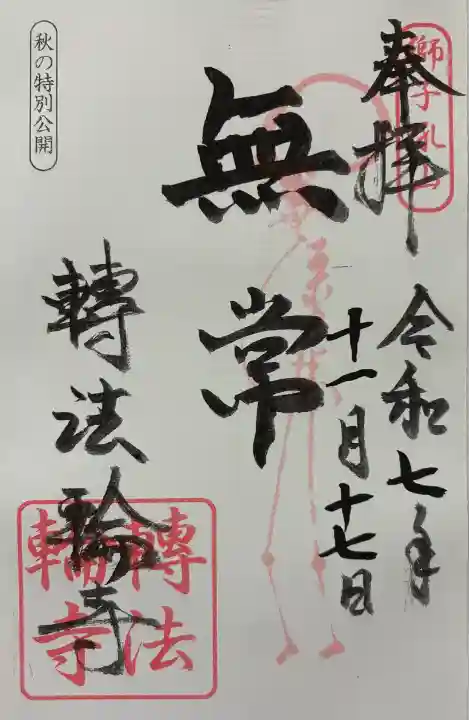 奉拝
獅子吼山
令和七年
十一月十七日
無常
轉法輪寺
轉法
輪寺
秋の特別公開